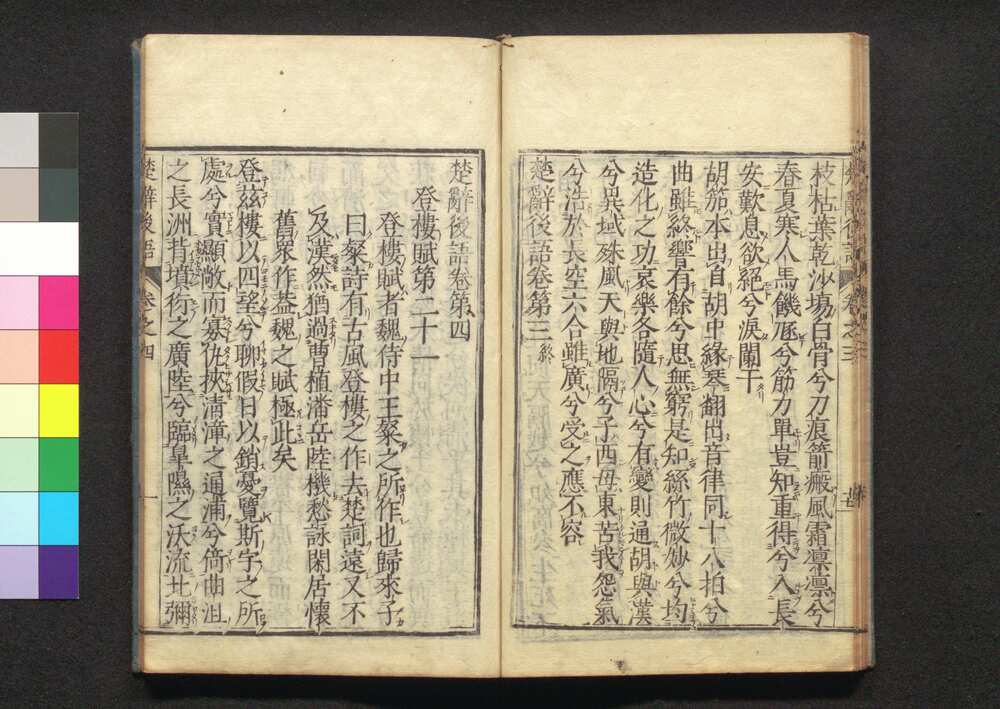 枝枯葉乾沙塲白骨兮刀痕箭瘢風霜凛凛兮
春夏寒人馬饑豗兮筋力單豈知重得兮入長
安歎息欲絕兮淚闌干
胡笳本出自胡中緣琴翻出音律同十八拍兮
曲雖終響有餘兮思無窮是知絲竹微妙兮均
造化之功哀樂各隨人心兮有變則通胡與漢
兮異域殊風天與地隔兮子西母東苦我怨氣
兮浩於長空六合雖廣兮受之應不容
楚辭後語卷第三 終
楚辭後語卷第四
登樓賦第二十一
登樓賦者魏侍中王粲之所作也歸來子
曰粲詩有古風登樓之作去楚詞遠又不
及漢然猶過曹植潘岳陸機愁詠閑居懷
舊衆作蓋魏之賦極此矣
登茲樓以四望兮聊假日以銷憂覽斯宇之所
處兮實顯敞而寡仇挾清漳之通浦兮倚曲沮
之長洲背墳衍之廣陸兮臨皐隰之沃流北彌
楚辭後語
卷之四
一